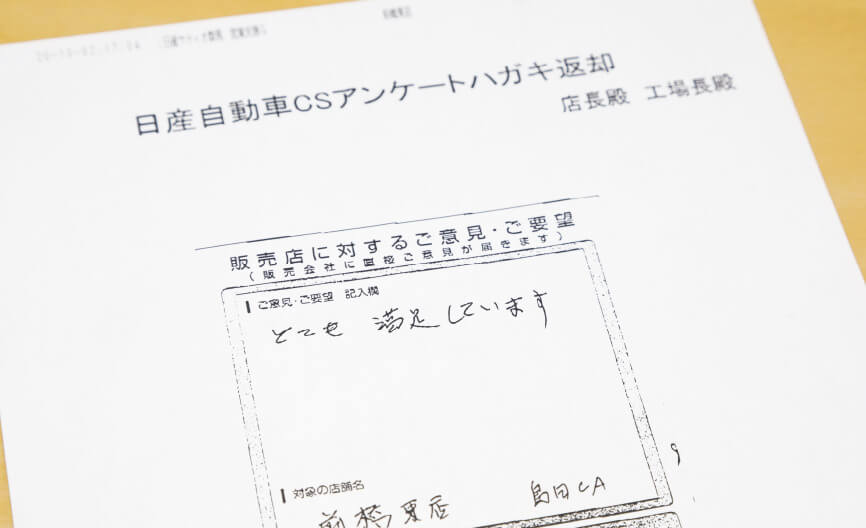 日産自動車CSアンケートハガキ返却
店長殿 工場長殿
販売店に対するご意見・ご要望
(販売会社に直接ご意見が届きます)
ご意見・ご要望 記入欄
とても 満足しています
対象の店舗名
前橋東店 島田CA